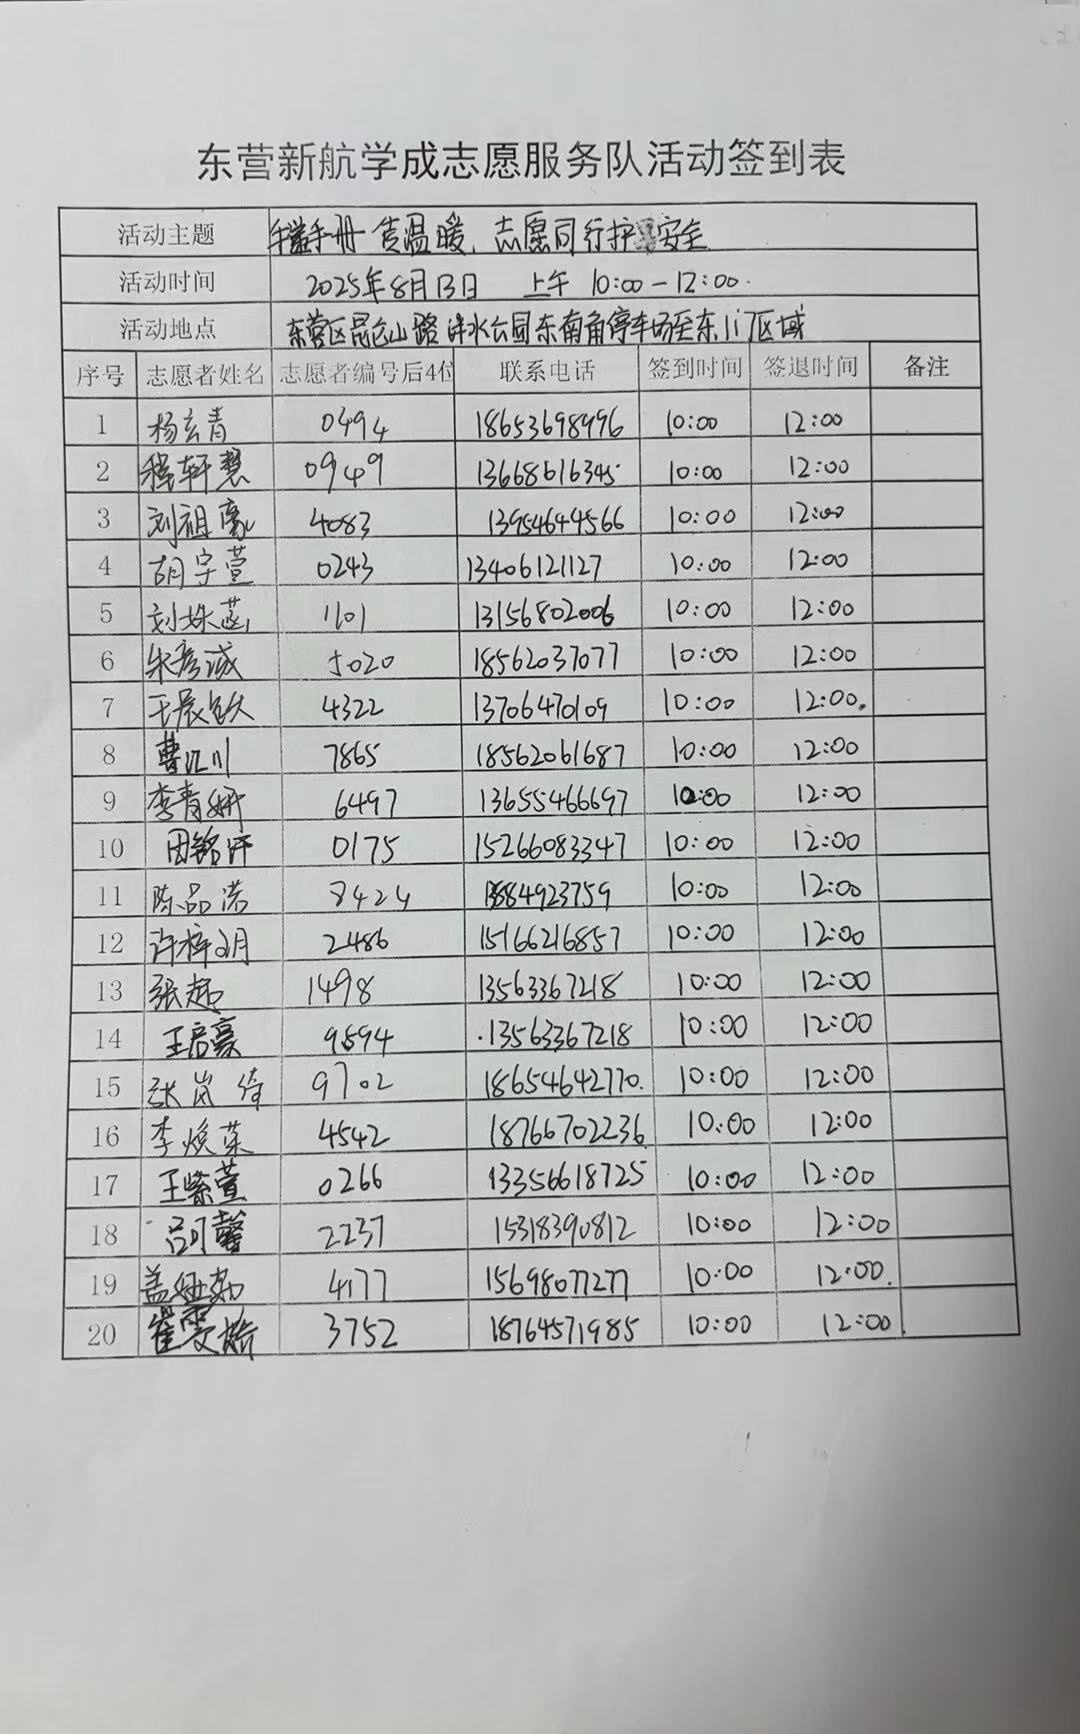 东营新航学成志愿服务队活动签到表
活动主题 手册传温暖、志愿同行护安全
活动时间 2025年8月13日 上午 10:00-12:00.
活动地点 东营区昆仑山路 洋水公园东南角停车场至东门区域
序号 志愿者姓名 志愿者编号后4位 联系电话 签到时间 签退时间 备注
1 杨玄青 0494 18653698996 10:00 12:00
2 程轩慧 0949 13668616345 10:00 12:00
3 刘祖豪 4083 13954644566 10:00 12:00
4 胡宇萱 0243 13406121127 10:00 12:00
5 刘姝菡 1101 13156802006 10:00 12:00
6 朱彦诚 5020 18562037077 10:00 12:00
7 4322 13706470109 10:00 12:00.
8 曹汇川 7865 18562061687 10:00 12:00
9 李青妍 6497 13655466697 10:00 12:00
10 田铭浒 0175 15266083347 10:00 12:00
11 陈品诺 8424 4923759 10:00 12:00
12 许梓玥 2486 15166216857 10:00 12:00
13 张越 1498 13563367218 10:00 12:00
14 王启豪 9594 13563367218 10:00 12:00
15 张岚倚 9702 18654642770. 10:00 12:00
16 李焕菜 4542 18766702236 10:00 12:00
17 王紫萱 0266 13356618725 10:00 12:00
18 吕可馨 2237 15318390812 10:00 12:00
19 盖 4177 15698077277 10:00 12:00.
20 崔雯 3752 18764571985 10:00 12:00